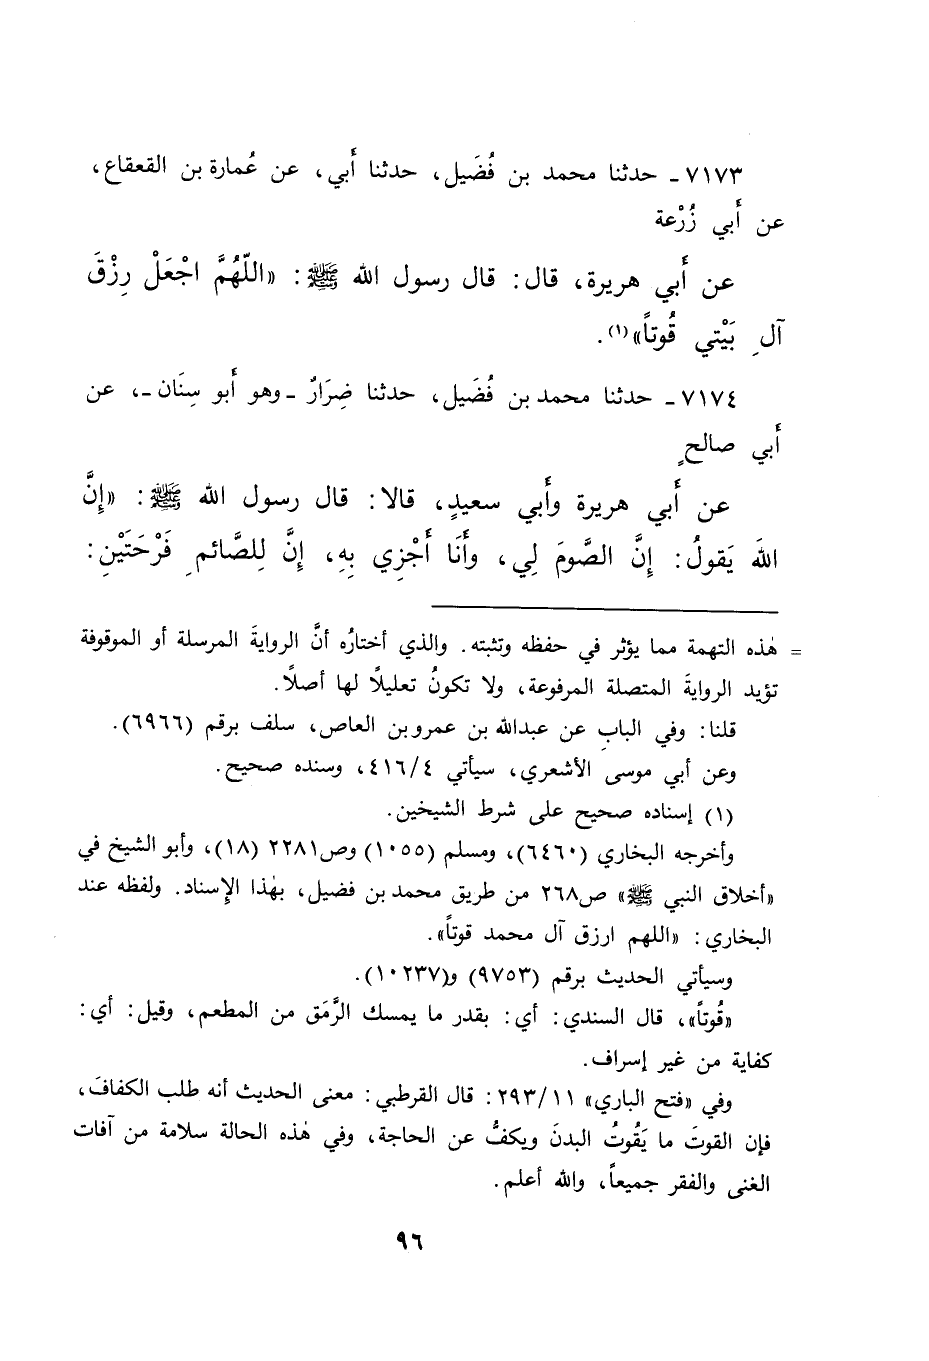 ٧١٧٣ ـ حدثنا محمد بن فُضَيل، حدثنا أَبي، عن عُمارة بن القعقاع،
عن أَبي زُرْعة
عن أَبي هريرة، قال: قال رسول الله ﷺ: «اللّهُمَّ اجْعَلْ رِزْقَ
آلِ بَيْتي قُوتاً»(١).
٧١٧٤ ـ حدثنا محمد بن فُضَيل، حدثنا ضِرَارٌ ـ وهو أَبو سِنَان ـ، عن
أَبي صالحٍ
عن أَبي هريرة وأَبي سعيدٍ، قالا: قال رسول الله ﷺ: «إِنَّ
اللهَ يَقولُ: إِنَّ الصَّومَ لِي، وأَنَا أَجْزِي بِهِ، إِنَّ لِلصَّائمِ فَرْحَتَيْنِ:
= هٰذه التهمة مما يؤثر في حفظه وتثبته. والذي أختارُه أنَّ الروايةَ المرسلة أو الموقوفة
تؤيد الروايةَ المتصلة المرفوعة، ولا تكونُ تعليلًا لها أصلًا.
قلنا: وفي البابِ عن عبدالله بن عمرو بن العاص، سلف برقم (٦٩٦٦).
وعن أبي موسى الأشعري، سيأتي ٤١٦/٤، وسنده صحيح.
(١) إسناده صحيح على شرط الشيخين.
وأخرجه البخاري (٦٤٦٠)، ومسلم (١٠٥٥) وص٢٢٨١ (١٨)، وأبو الشيخ في
«أخلاق النبي ﷺ» ص٢٦٨ من طريق محمد بن فضيل، بهٰذا الإسناد. ولفظه عند
البخاري: «اللهم ارزق آل محمد قوتاً».
وسيأتي الحديث برقم (٩٧٥٣) و(١٠٢٣٧).
«قُوتاً»، قال السندي: أي: بقدر ما يمسك الرَّمَق من المطعم، وقيل: أي:
كفاية من غير إسراف.
وفي «فتح الباري» ٢٩٣/١١: قال القرطبي: معنى الحديث أنه طلب الكفافَ،
فإن القوتَ ما يَقُوتُ البدنَ ويكفُّ عن الحاجة، وفي هٰذه الحالة سلامة من آفات
الغنى والفقر جميعاً، والله أعلم.
٩٦